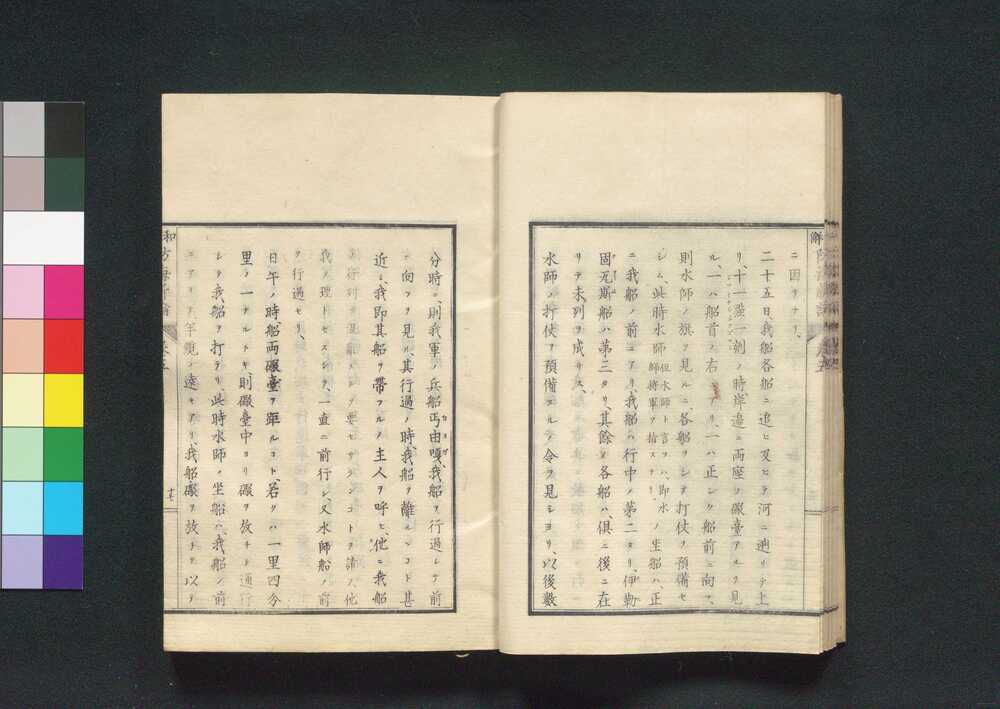 ニ因リナリ、
二十五日、我船各船ニ追ヒ及ヒテ河ニ遡リテ上
リ、十一點一刻ノ時、岸邉ニ兩座ノ礮臺アルヲ見
ル、一ハ船首ノ右ニアリ、一ハ正シク船前ニ向フ、
則水師ノ旗ヲ見ルニ、各船ヲシテ打仗ヲ預備セ
シム、此時水師 但水師ト言ヲハ、即水師將軍ヲ指ス ノ坐船ハ、正
ニ我船ノ前ニアリ、我船ハ行中ノ第二タリ、伊勒
固瓦斯船ハ第三タリ、其餘ノ各船ハ、倶ニ後ニ在
リテ未列ヲ成サス、
水師ノ打仗ヲ預備スルノ令ヲ見シヨリ、以後數
分時ニ、則我軍ノ兵船丐由嗄、我船ヲ行過シテ前
ニ向フヲ見ル、其行過ノ時、我船ヲ離ルヽコト甚
近シ、我即其船ヲ帶フルノ主人ヲ呼ヒ、他ニ我船
ヲ要セサランコトヲ請フ、他
我ヲ理トセスシテ、一直ニ前行シ、又水師船ノ前
ヲ行過セリ、
日午ノ時、船兩礮臺ヲ距ルコト、若クハ一里四分
里ノ一ナルトキ、則礮臺中ヨリ礮ヲ放チテ通行
シテ我船ヲ打テリ、此時水師ノ坐船ハ、我船ノ前
ニアリテ、半繩ノ遠セアリ、我船礮ヲ放チテ以テ